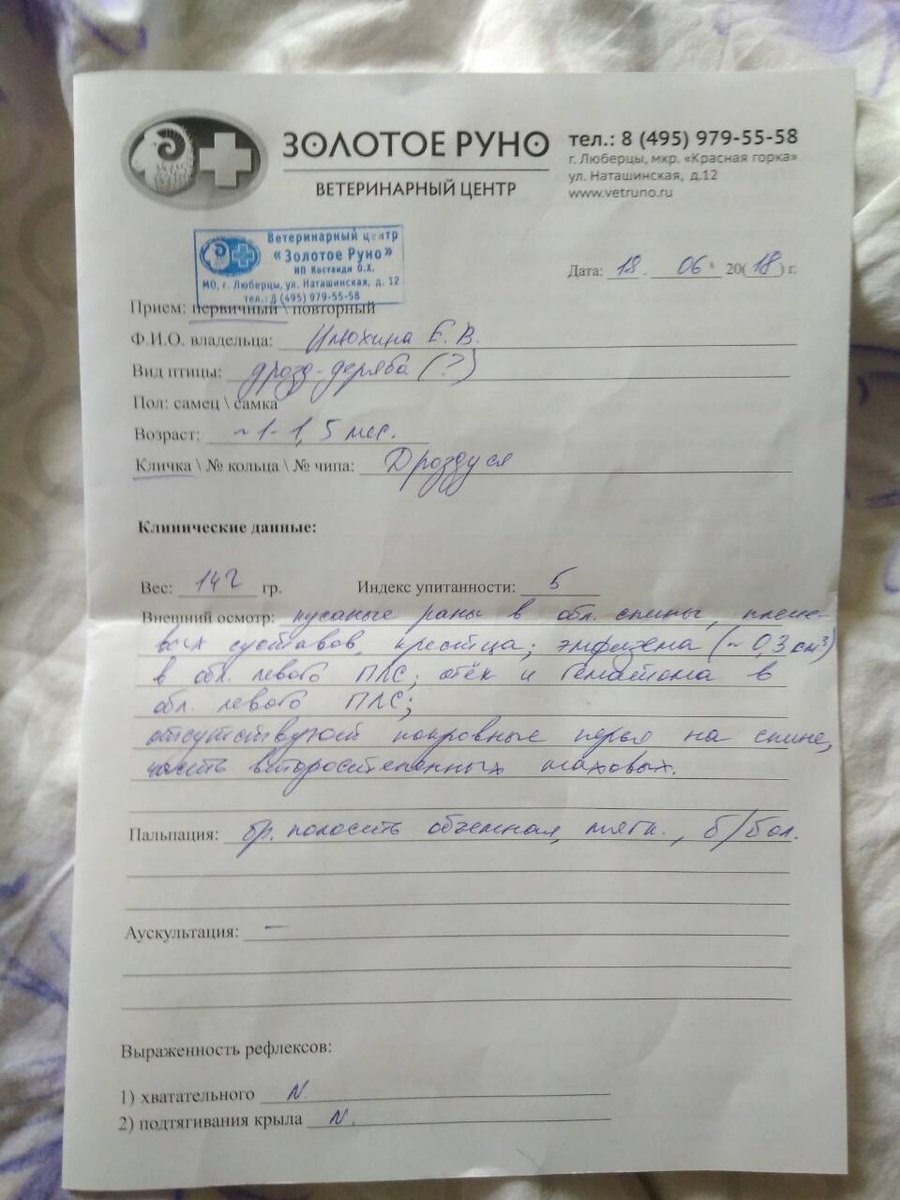 ЗОЛОТОЕ РУНО
ВЕТЕРИНАРНЫЙ ЦЕНТР
тел.: 8 (495) 979-55-58
г. Люберцы, мкр. «Красная горка»
ул. Наташинская, д.12
www.vetruno.ru
Ветеринарный центр
«Золотое Руно»
ИП Костанди О.Х.
МО, г. Люберцы, ул. Наташинская, д. 12
тел.: 8 (495) 979-55-58
Дата: 18. 06. 20(18) г.
Прием: первичный \ повторный
Ф.И.О. владельца: Илюхина Е. В.
Вид птицы: дрозд-деряба (?)
Пол: самец \ самка
Возраст: ~ 1-1,5 мес.
Кличка \ № кольца \ № чипа: Дроздуся
Клинические данные:
Вес: 142 гр. Индекс упитанности: 5
Внешний осмотр: кусаные раны в обл. спины, плече-
вых суставов, крестца; эмфизема (~ 0,3 см³)
в обл. левого ПЛС; отёк и гематома в
обл. левого ПЛС;
отсутствуют покровные перья на спине,
часть второстепенных маховых.
Пальпация: бр. полость объемная, мягк., б/бол.
Аускультация: —
Выраженность рефлексов:
1) хватательного N.
2) подтягивания крыла N.